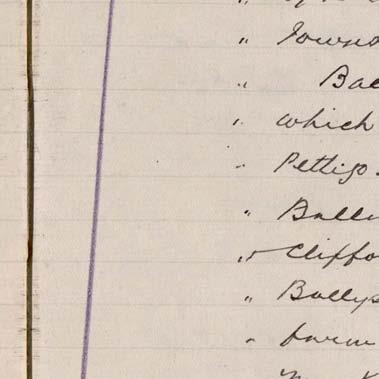 " Towns
" Bal
" which
" Pettigo
" Bally
" Cliffo
" Ballys
" farm